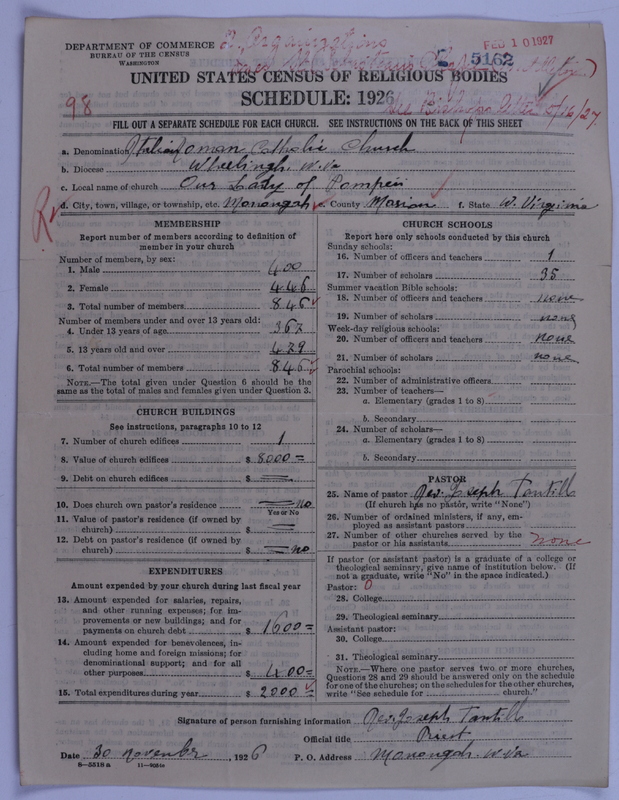 DEPARTMENT OF COMMERCE
BUREAU OF THE CENSUS
WASHINGTON
FEB 10 1927
5162
UNITED STATES CENSUS OF RELIGIOUS BODIES
SCHEDULE: 1926
98
FILL OUT A SEPARATE SCHEDULE FOR EACH CHURCH. SEE INSTRUCTIONS ON THE BACK OF THIS SHEET
a. Denomination Roman Catholic Church
b. Diocese Wheeling, W. Va
c. Local name of church Our Lady of Pompeii
d. City, town, village, or township, etc. Monongah e. County Marion f. State W. Virginia
MEMBERSHIP
Report number of members according to definition of member in your church
Number of members, by sex:
1. Male 400
2. Female 446
3. Total number of members 846
Number of members under and over 13 years old:
4. Under 13 years of age 367
5. 13 years old and over 479
6. Total number of members 846
NOTE.—The total given under Question 6 should be
same as the total of males and females given under Question 3.
CHURCH BUILDINGS
See instructions, paragraphs 10 to 12
7. Number of church edifices 1
8. Value of church edifices $ 8000 =
9. Debt on church edifices $
10. Does church own pastor's residence no
Yes or No
11. Value of pastor's residence (if owned by
church) $
12. Debt on pastor's residence (if owned by
church) $ no
EXPENDITURES
Amount expended by your church during last fiscal year
13. Amount expended for salaries, repairs,
and other running expenses; for im-
provements or new buildings; and for
payments on church debt $ 1600 =
14. Amount expended for benevolences, in-
cluding home and foreign missions; for
denominational support; and for all
other purposes $ 400 =
15. Total expenditures during year $ 2000 =
CHURCH SCHOOLS
Report here only schools conducted by this church
Sunday schools:
16. Number of officers and teachers 1
17. Number of scholars 35
Summer vacation Bible schools:
18. Number of officers and teachers none
19. Number of scholars none
Week-day religious schools:
20. Number of officers and teachers none
21. Number of scholars none
Parochial schools:
22. Number of administrative officers
23. Number of teachers—
a. Elementary (grades 1 to 8)
b. Secondary
24. Number of scholars—
a. Elementary (grades 1 to 8)
b. Secondary
PASTOR
25. Name of pastor Rev. Joseph
(If church has no pastor, write "None")
26. Number of ordained ministers, if any, em-
ployed as assistant pastors
27. Number of other churches served by the
pastor or his assistants none
If pastor (or assistant pastor) is a graduate of a college or
theological seminary, give name of institution below. (If
not a graduate, write "No" in the space indicated.)
Pastor: 0
28. College
29. Theological seminary
Assistant pastor:
30. College
31. Theological seminary
NOTE.—Where one pastor serves two or more churches,
Questions 28 and 29 should be answered only on the schedule
for one of the churches; on the schedules for the other churches,
write "See schedule for church."
Signature of person furnishing information Rev. Joseph
Official title Priest
Date 30 November, 1926 P. O. Address Monongah. W. Va
8—5518 a